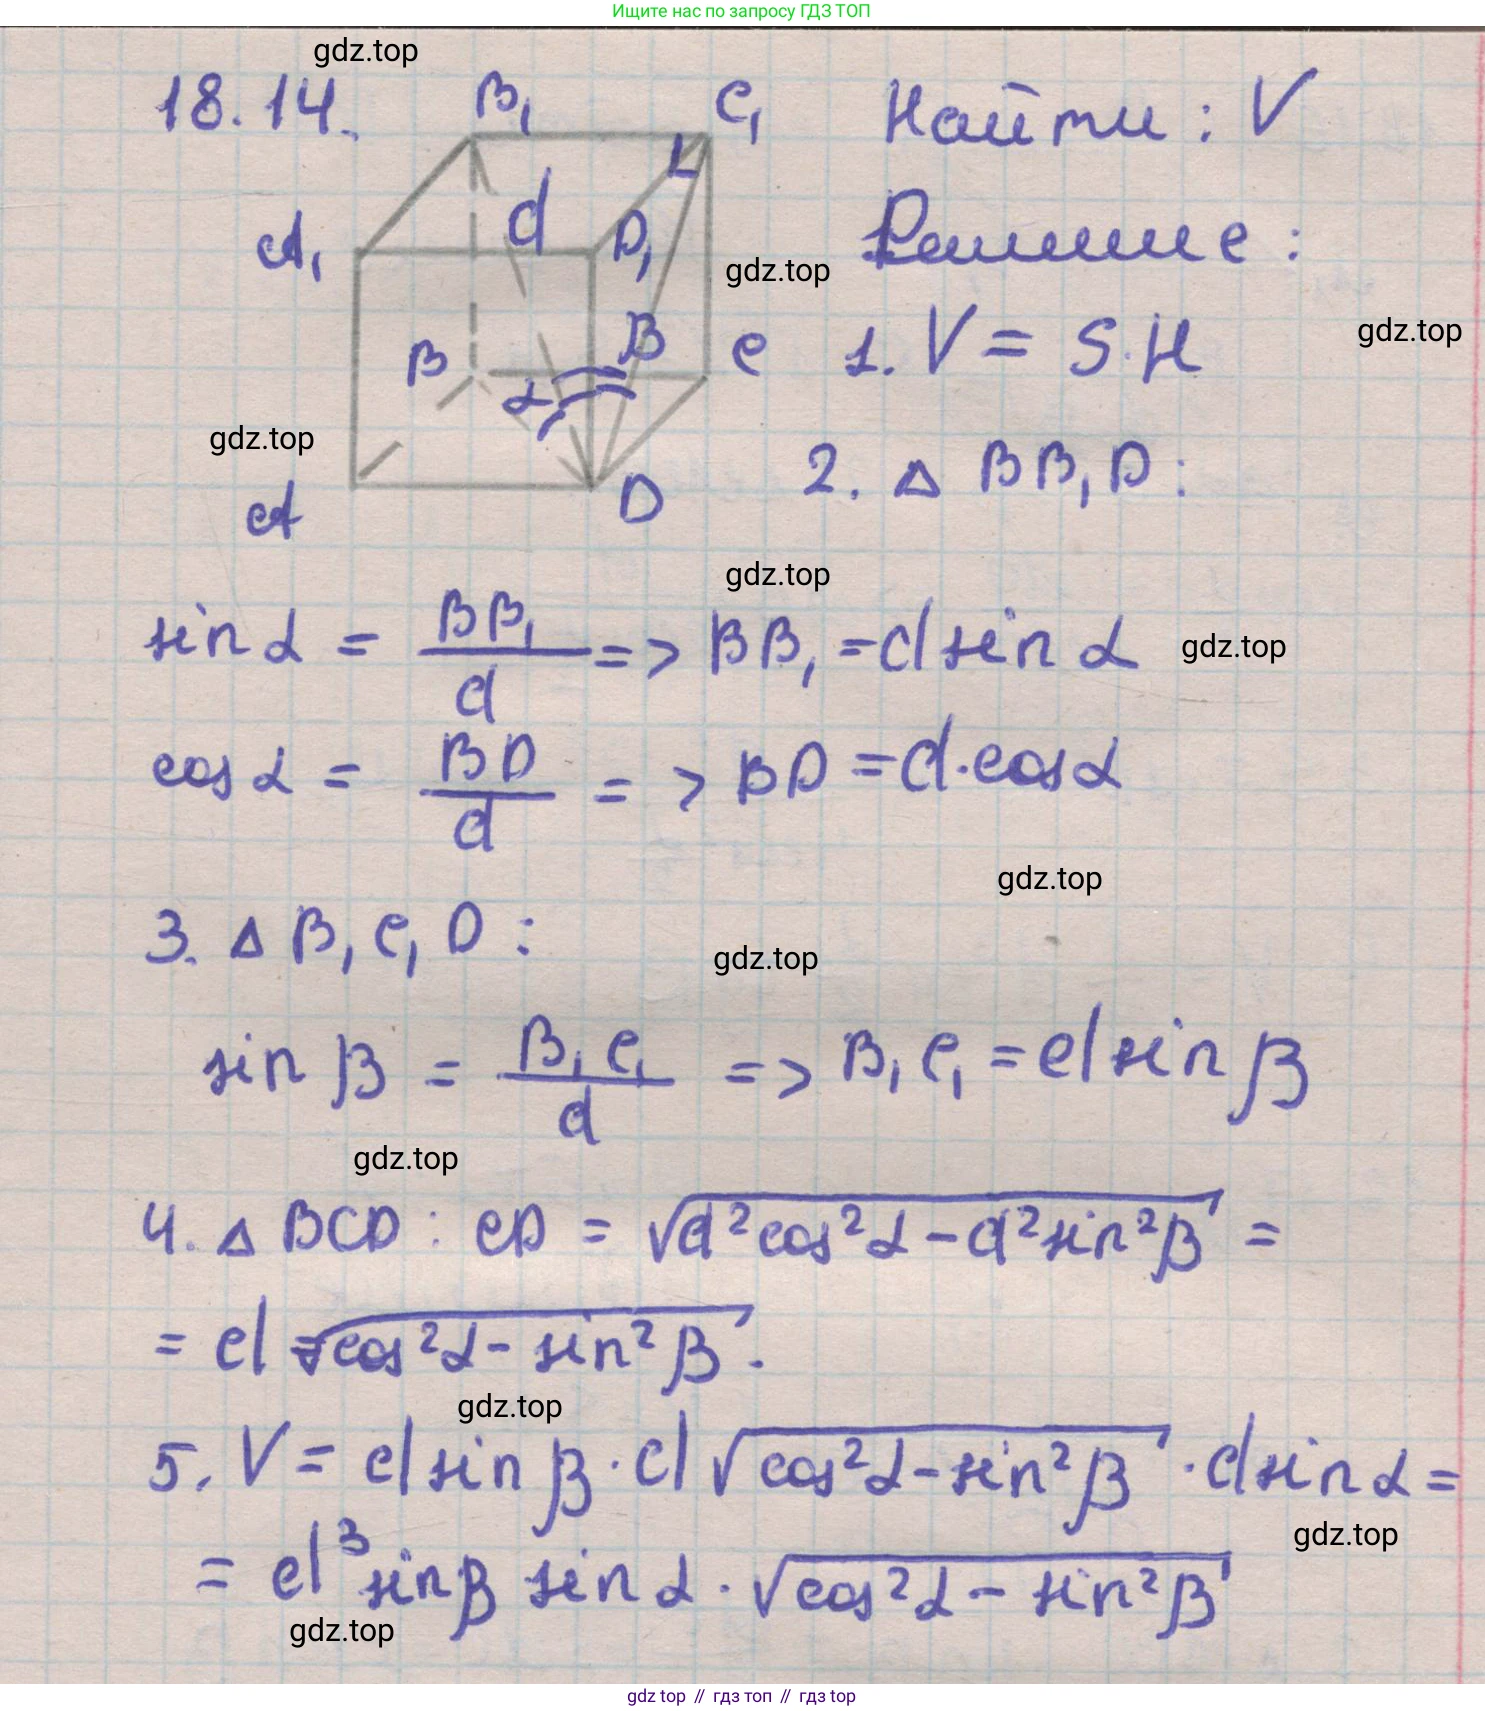 Ищите нас по запросу ГДЗ ТОП
gdz.top
18.14.
B₁
C₁
Найти: V
A₁
d
D₁
Решение:
gdz.top
gdz.top
B
β
C
1. V = S·H
α
gdz.top
A
D
2. △ BB₁D:
gdz.top
sin α = BB₁/d => BB₁ = d sin α
gdz.top
cos α = BD/d => BD = d·cos α
gdz.top
3. △ B₁C₁D:
gdz.top
sin β = B₁C₁/d => B₁C₁ = d sin β
gdz.top
4. △ BCD: CD = √(d²cos²α - d²sin²β) =
= d √(cos²α - sin²β).
gdz.top
5. V = d sin β · d √(cos²α - sin²β) · d sin α =
gdz.top
= d³ sin β sin α · √(cos²α - sin²β)
gdz.top
gdz top // гдз топ // gdz top